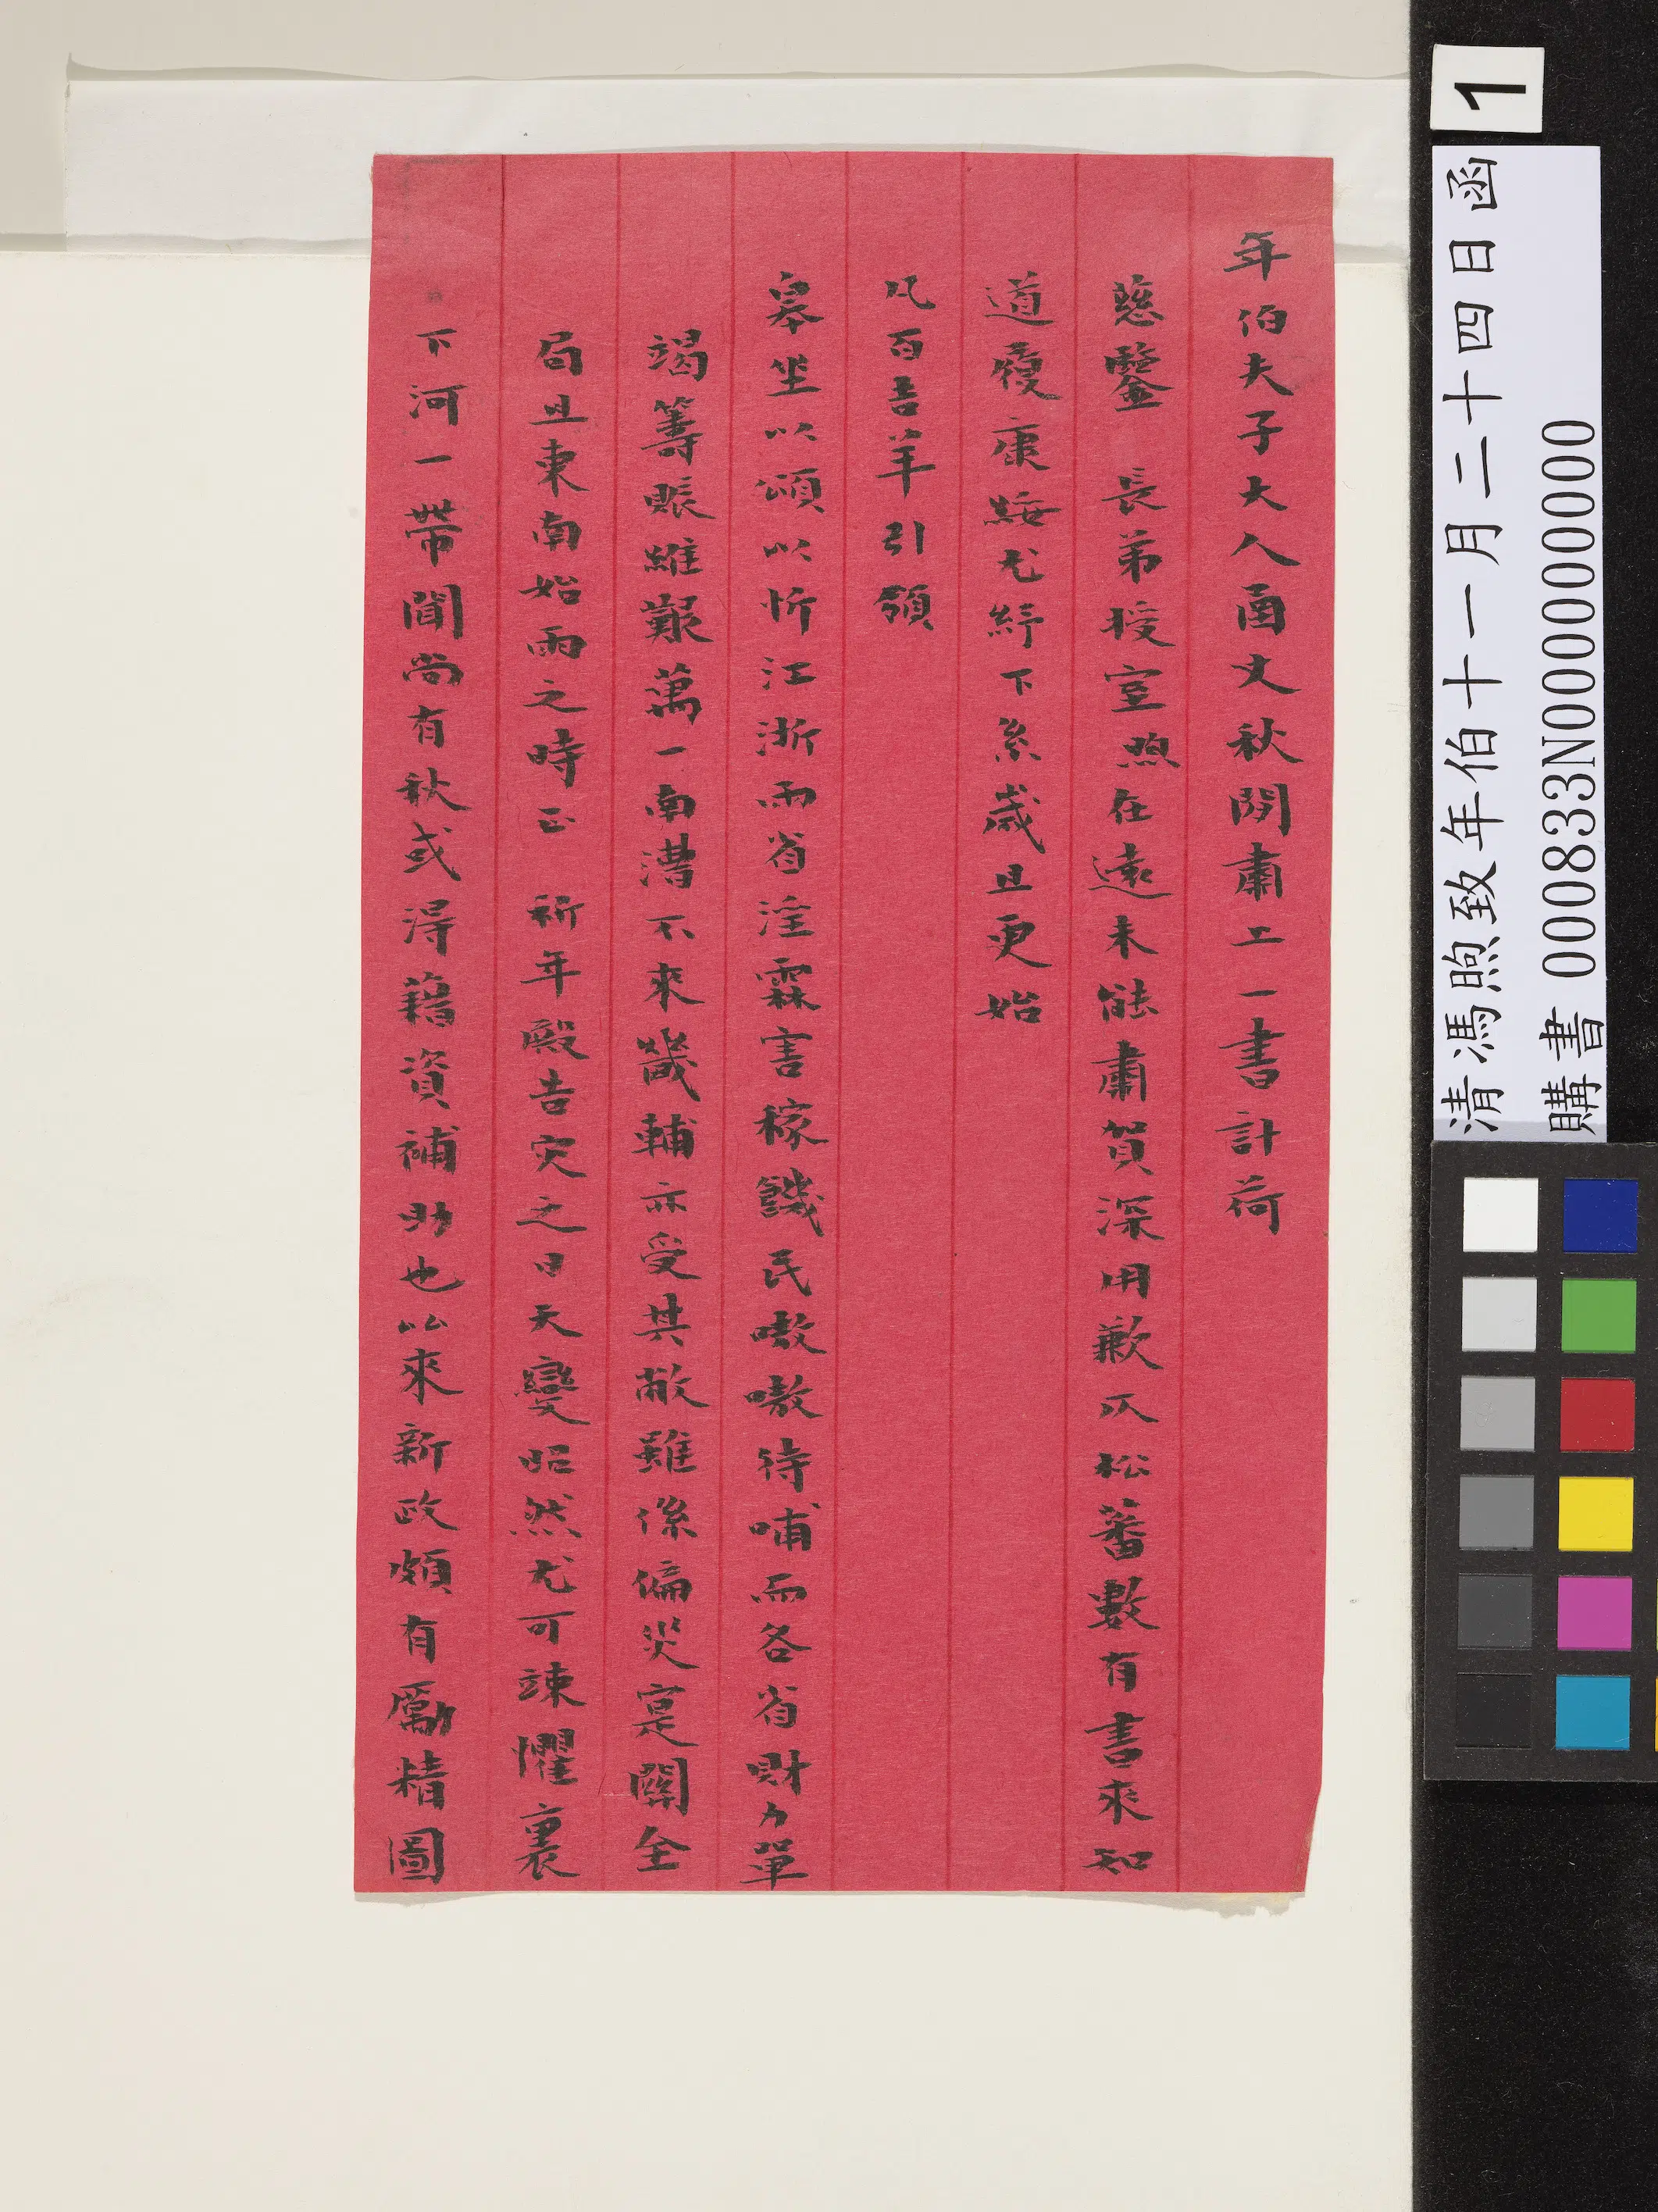 年伯夫子大人函丈秋閒肅上一書計荷
慈鑒　長弟授室煦在遠未能肅賀深用歉仄松蕃數有書來知
道履康綏尤紓下系歲且更始
凡百吉羊引領
皋坐以頌以忻江浙兩省淫霖害稼饑民嗷嗷待哺而各省財力單
竭籌賑維艱萬一南漕不來畿輔亦受其敝雖係偏災寔關全
局且東南始雨之時正　祈年殿告灾之日天變昭然尤可竦懼裏
下河一帶聞尚有秋或得藉資補助也比來新政頗有勵精圖
1
清馮煦致年伯十一月二十四日函
購書 000833N000000000